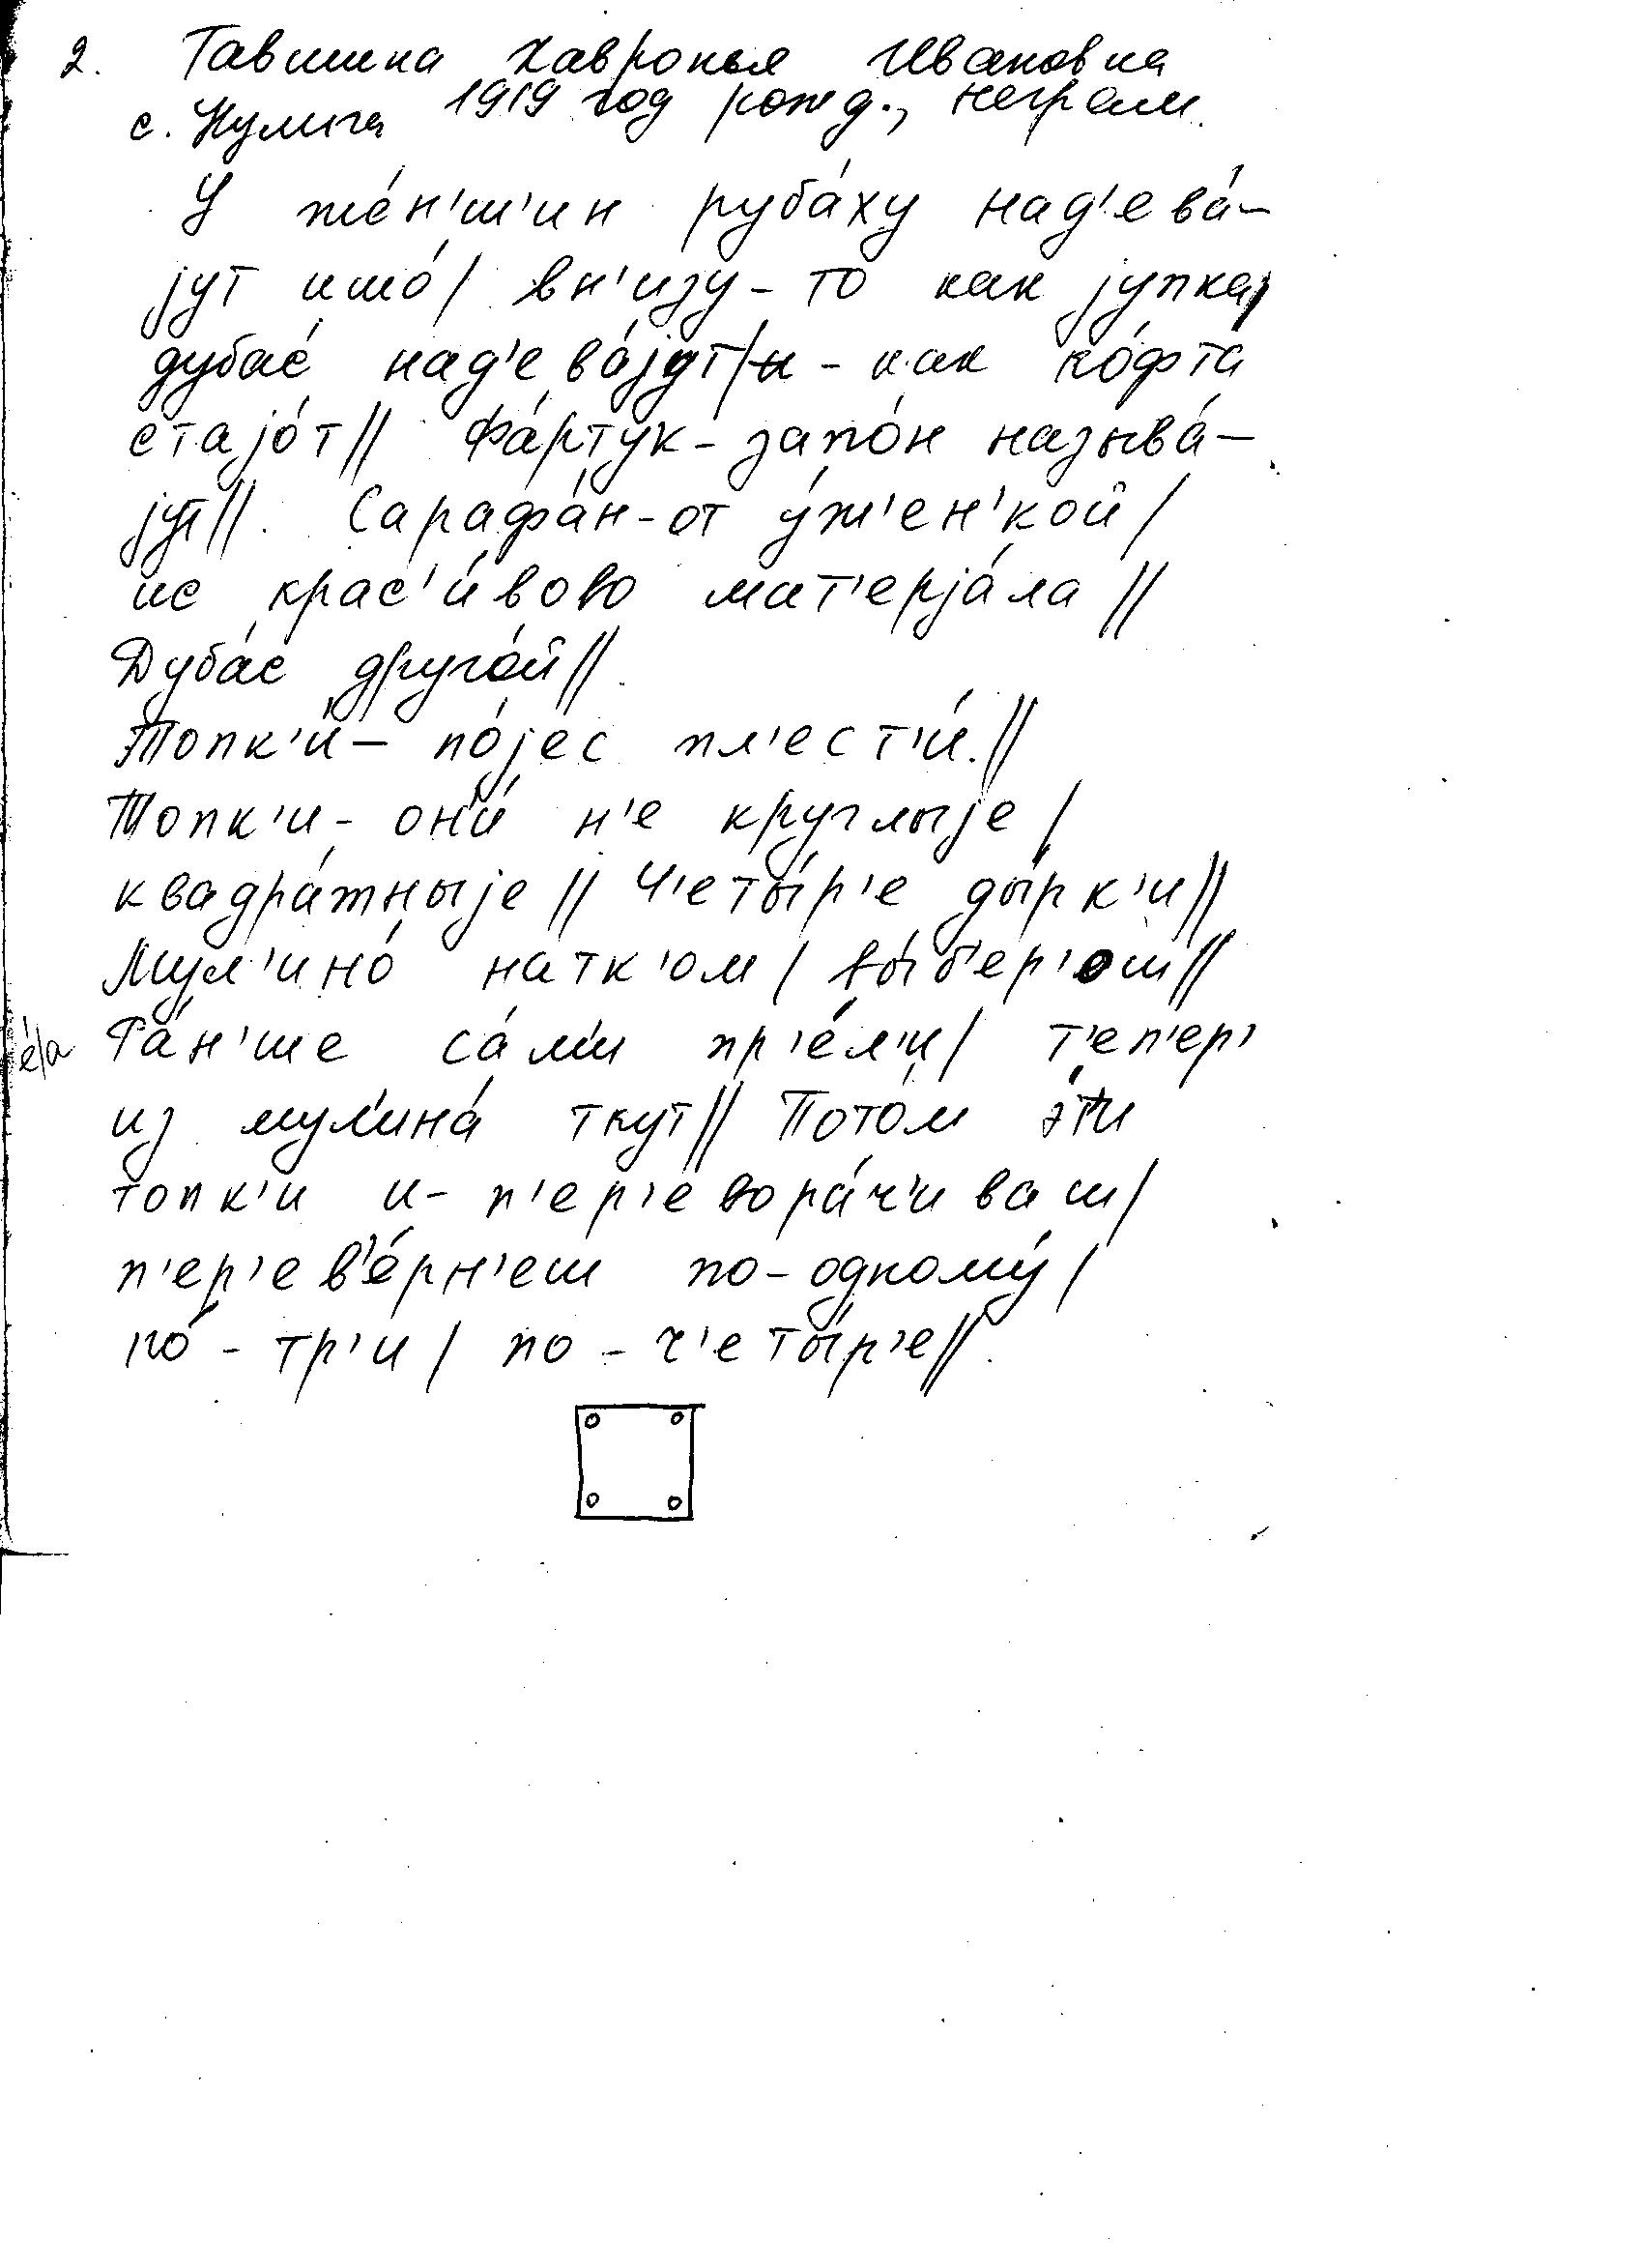 2. Тавшина Хавронья Ивановна
с. Кулига 1919 год рожд., неграм.
У же́н'ш'ин руба́ху над'ева́-
jут ишо́ / вн'изу-то как jупка,
дубас над'ева́jут/и - как ко́фта
стаjо́т // Фа́ртук - запо́н называ́-
jут //. Сарафа́н-от у́ж'ен'кой /
ис крас'и́вово мат'ерjа́ла //
Дуба́с друго́й //.
Топк'и́ - по́jес пл'ест'и́. //
Топк'и - он'и́ н'е круглыjе /
квадра́тныjе // Ч'еты́р'е ды́рк'и //
Мул'ино́ натк'ом / вы́б'ер'ош //
е́/а Ра́н'ше са́м'и пр'е́л'и / т'еп'ер'
из мул'ина́ ткут // Пото́м э́т'и
топк'и и - п'ер'евора́ч'иваш /
п'ер'ев'е́рн'еш по-одному́ /
по́ - тр'и / по - ч'еты́р'е //.